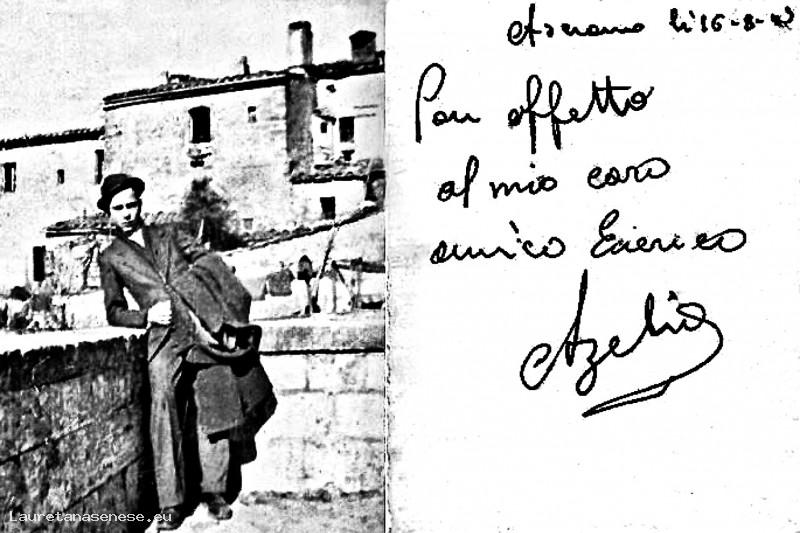 Asciano lì 16-8-42
Con affetto
al mio caro
amico
Azelio
Lauretanasenese.eu